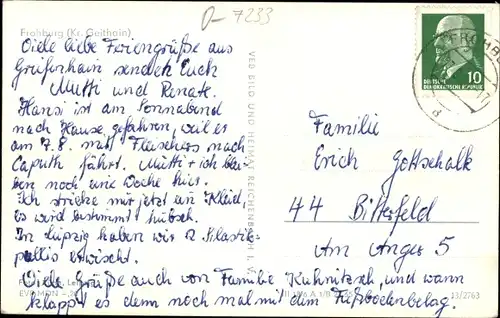 D-7233
Frohburg (Kr. Geithain)
Viele liebe Feriengrüße aus
Gräfenhain senden Euch
Mutti und Renate.
Hansi ist am Sonnabend
nach Hause gefahren, weil es
am 7.8. mit Fleischers nach
Caputh fährt. Mutti + ich blei
ben noch eine Woche hier.
Ich stricke mir jetzt ein Kleid,
es wird bestimmt hübsch.
In Leipzig haben wir 2 Plastik-
pullis erwischt.
Viele Grüße auch von Familie Kuhnitzsch, und wann
klappt es denn noch mal mit dem Fußbodenbelag.
VEB BILD UND HEIMAT REICHENBACH
10
DEUTSCHE
DEMOKRATISCHE REPUBLIK
Familie
Erich Gottschalk
44 Bitterfeld
Am Anger 5
13/2763